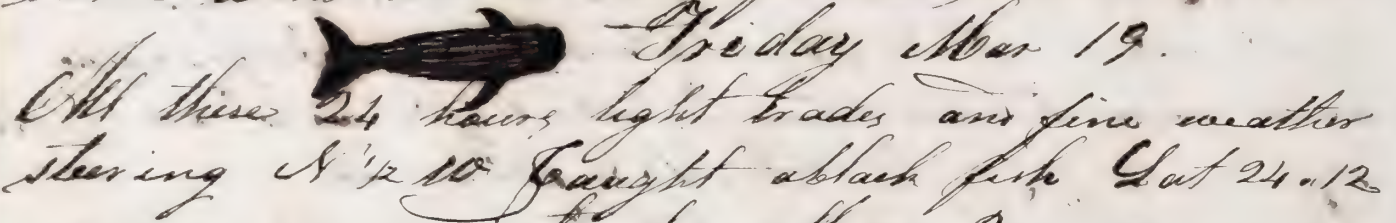 Friday Mar 19.
All these 24 hours light trades and fine weather
steering N 1/2 W Caught a black fish Lat 24.12